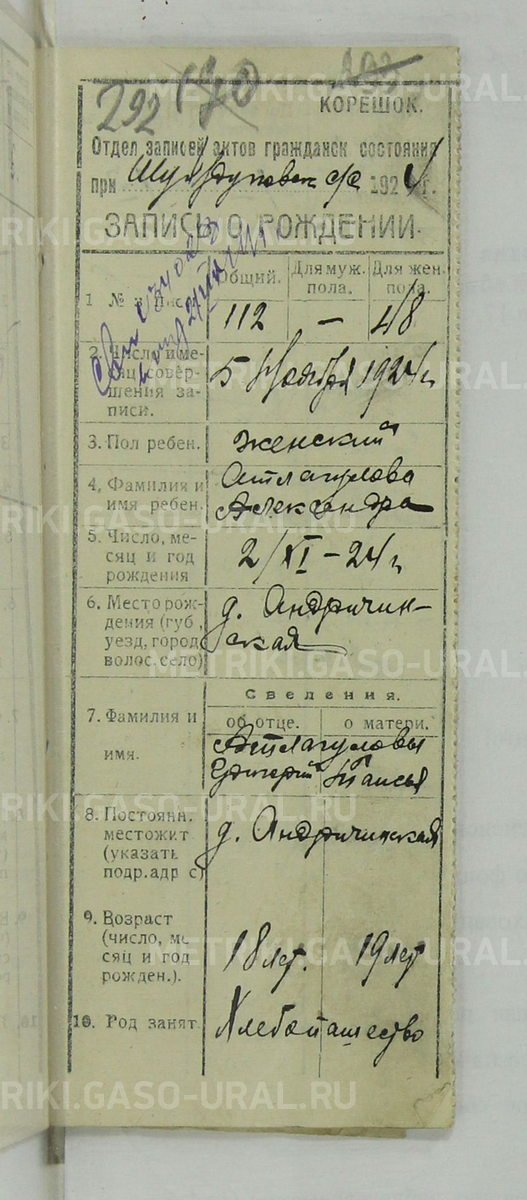 292 170 293
КОРЕШОК.
Отдел записей актов гражданск состояния
при с/с 1924 г.
ЗАПИСЬ О РОЖДЕНИИ.
Общий. Для муж. пола. Для жен. пола.
1 № 112 — 48
2. Число и ме-
сяц совер-
шения за-
писи.
5 Ноября 1924 г
3. Пол ребен. женский
4, Фамилия и
имя ребен.
Атлагулова
Александра
5. Число, ме-
сяц и год
рождения
2/XI – 24 г
6. Место рож-
дения (губ,
уезд, город
волос, село)
д. Андричин-
ская
Сведения.
7. Фамилия и
имя.
об отце. о матери.
Атлагуловы
Григорий Таисья
8. Постоянн.
местожит
(указать
подр.адр с)
д. Андричинская
9. Возраст
(число, ме
сяц и год
рожден.).
18 лет. 19 лет
10. Род занят Хлебопашество
METRIKI.GASO-URAL.RU